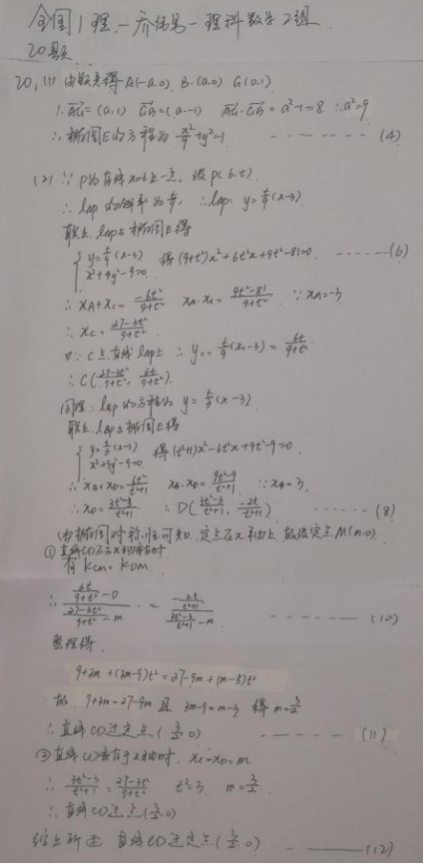 全国1理-乔伟男-理科数学2组
20题
20、(1) 由题意得 A(-a,0), B(a,0) G(0,1)
∴ AG=(a,1) GB=(a,-1) AG·GB=a²-1=8 ∴a²=9
∴椭圆E的方程为 x²/9+y²=1 -------(4)
(2) ∵ P为直线x=6上一点, 设P(6,t)
∴ lAP的斜率为 t/9, ∴lAP: y=t/9(x+3)
联立lAP与椭圆E得
{ y=t/9(x+3)
x²+9y²-9=0 得(9+t²)x²+6t²x+9t²-81=0 -----(6)
∴ xA+xC=-6t²/9+t² xA·xC=9t²-81/9+t² ∵xA=-3
∴ xC=27-3t²/9+t²
又∵C在直线lAP上 ∴yC=t/9(xC+3)=6t/9+t²
∴ C(27-3t²/9+t², 6t/9+t²)
同理: lBP的方程为 y=t/3(x-3)
联立lBP与椭圆E得
{ y=t/3(x-3)
x²+9y²-9=0 得(t²+1)x²-6t²x+9t²-9=0
∴ xB+xD=6t²/t²+1 xB·xD=9t²-9/t²+1 ∵xB=3
∴ xD=3t²-3/t²+1 ∴D(3t²-3/t²+1, -2t/t²+1) -----(8)
由椭圆对称性可知, 定点在x轴上, 故设定点M(m,0)
①直线CD不垂直x轴时
有 kCM=kDM
∴ 6t/9+t²-0 / 27-3t²/9+t²-m = -2t/t²+1 / 3t²-3/t²+1-m ------(10)
整理得
9+3m+(3m-9)t²=27-9m+(m-3)t²
故 9+3m=27-9m 且 3m-9=m-3 得m=3/2
∴直线CD过定点(3/2,0) -----(11)
②直线CD垂直于x轴时, xC=xD=m
∴ 3t²-3/t²+1=27-3t²/9+t² t²=3 m=3/2
∴直线CD过点(3/2,0)
综上所述 直线CD过定点(3/2,0) ------(12)